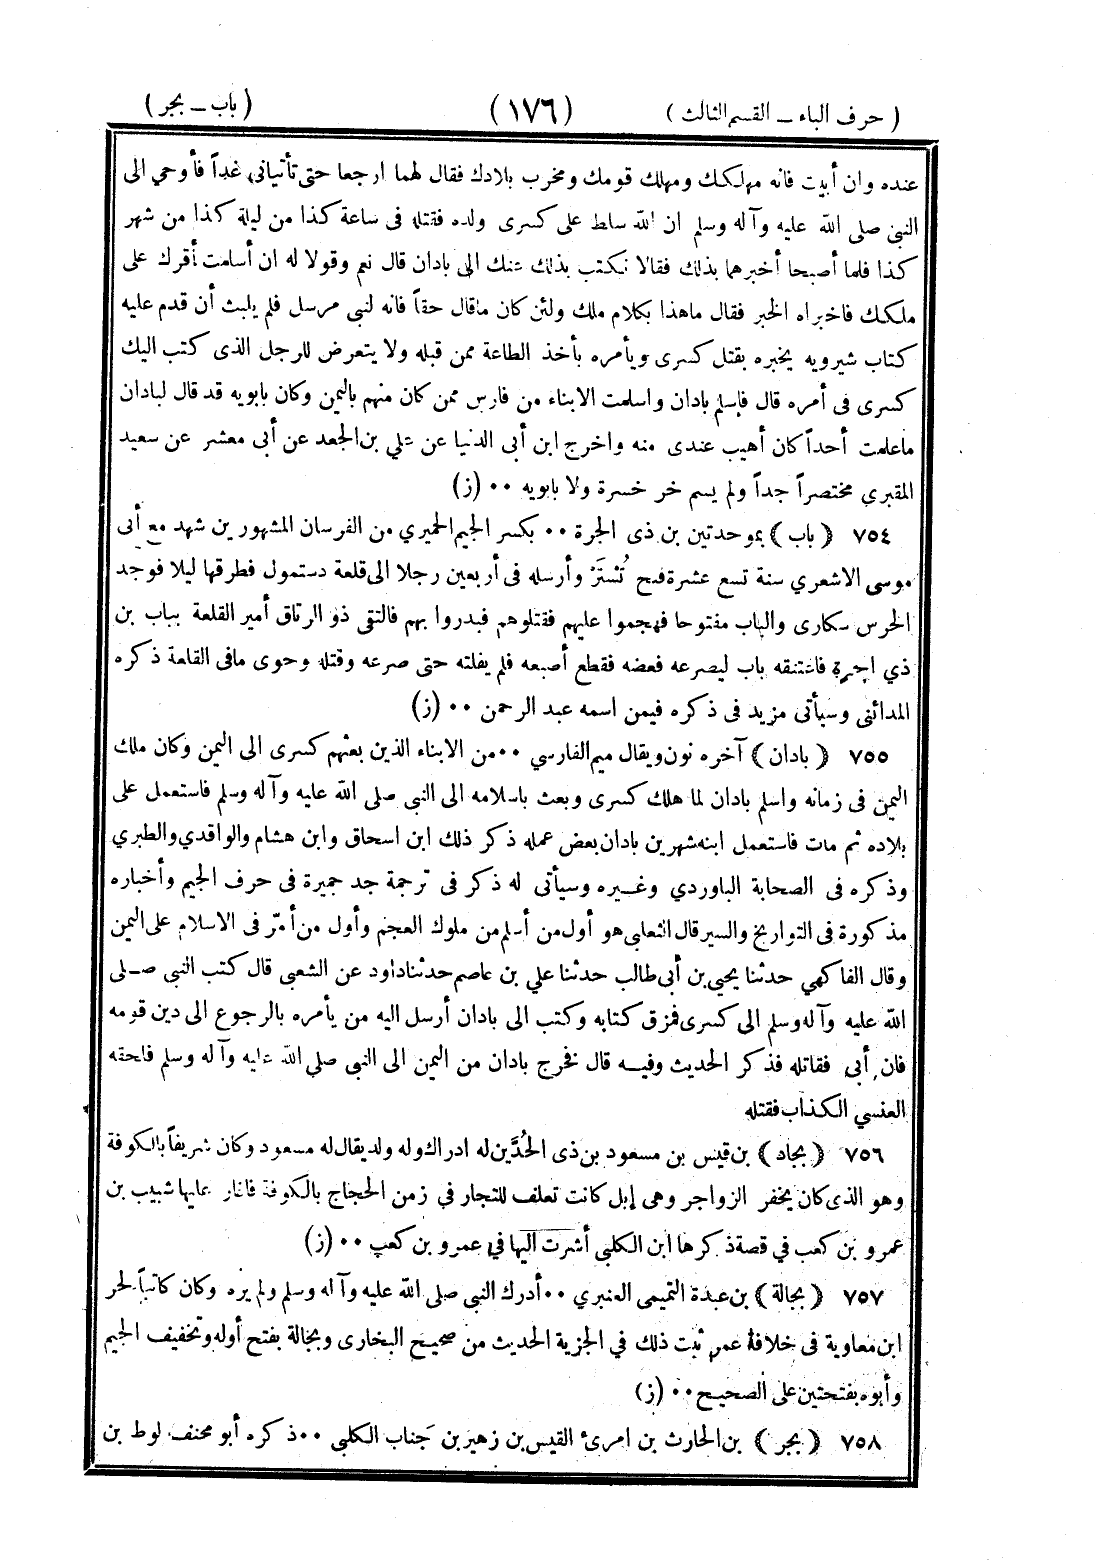 ( حرف الباء ــ القسم الثالث ) (١٧٦) ( باب ــ بجر )
عنده وان أبيت فانه مهلكك ومهلك قومك ومخرب بلادك فقال لهما ارجعا حتى تأتيانى غداً فأوحي الى
النبى صلى الله عليه وآله وسلم ان الله سلط على كسرى ولده فقتله فى ساعة كذا من ليلة كذا من شهر
كذا فلما أصبحا أخبرهما بذلك فقالا نكتب بذلك عنك الى بادان قال نعم وقولا له ان أسلمت أقرك على
ملكك فاخبراه الخبر فقال ماهذا بكلام ملك ولئن كان ماقال حقاً فانه لنبى مرسل فلم يلبث أن قدم عليه
كتاب شيرويه يخبره بقتل كسرى ويأمره بأخذ الطاعة ممن قبله ولا يتعرض للرجل الذى كتب اليك
كسرى فى أمره قال فاسلم بادان واسلمت الابناء من فارس ممن كان منهم باليمن وكان بابويه قد قال لبادان
ماعلمت أحداً كان أهيب عندى منه واخرج ابن أبى الدنيا عن علي بن الجعد عن أبى معشر عن سعيد
المقبري مختصراً جداً ولم يسم خر خسرة ولا بابويه ٠٠ (ز)
٧٥٤ ( باب ) بموحدتين بن ذى الجرة ٠٠ بكسر الجيم الحميري من الفرسان المشهورين شهد مع أبى
موسى الاشعري سنة تسع عشرة فتح تُسْتَرَ وأرسله فى أربعين رجلا الى قلعة دستمول فطرقها ليلا فوجد
الحرس سكارى والباب مفتوحا فهجموا عليهم فقتلوهم فبدروا بهم فالتقى ذو الرتاق أمير القلعة بباب بن
ذي الجرة فاعتنقه باب ليصرعه فعضه فقطع أصبعه فلم يفلته حتى صرعه وقتله وحوى مافى القلعة ذكره
المدائنى وسيأتى مزيد فى ذكره فيمن اسمه عبد الرحمن ٠٠ (ز)
٧٥٥ ( بادان ) آخره نون ويقال ميم الفارسي ٠٠ من الابناء الذين بعثهم كسرى الى اليمن وكان ملك
اليمن فى زمانه واسلم بادان لما هلك كسرى وبعث باسلامه الى النبى صلى الله عليه وآله وسلم فاستعمل على
بلاده ثم مات فاستعمل ابنه شهر بن بادان بعض عمله ذكر ذلك ابن اسحاق وابن هشام والواقدي والطبري
وذكره فى الصحابة الباوردي وغيره وسيأتى له ذكر فى ترجمة جد جميرة فى حرف الجيم وأخباره
مذكورة فى التواريخ والسير قال الثعلبى هو أول من أسلم من ملوك العجم وأول من أمّر فى الاسلام على اليمن
وقال الفاكهي حدثنا يحيى بن أبى طالب حدثنا علي بن عاصم حدثنا داود عن الشعبى قال كتب النبى صلى
الله عليه وآله وسلم الى كسرى فمزق كتابه وكتب الى بادان أرسل اليه من يأمره بالرجوع الى دين قومه
فان أبى فقاتله فذكر الحديث وفيه قال فخرج بادان من اليمن الى النبى صلى الله عليه وآله وسلم فلحقه
العنسي الكذاب فقتله
٧٥٦ ( بجاد ) بن قيس بن مسعود بن ذى الجُدَّين له ادراك وله ولد يقال له مسعود وكان شريفاً بالكوفة
وهو الذى كان يخفر الزواجر وهى إبل كانت تعلف للتجار في زمن الحجاج بالكوفة فاغار عليها شبيب بن
عمرو بن كعب في قصة ذكرها ابن الكلبى أشرت اليها في عمرو بن كعب ٠٠ (ز)
٧٥٧ ( بجالة ) بن عبدة التميمى العنبري ٠٠ أدرك النبى صلى الله عليه وآله وسلم ولم يره وكان كاتباً لجر
ابن معاوية فى خلافة عمر ثبت ذلك في الجزية الحديث من صحيح البخارى وبجالة بفتح أوله وتخفيف الجيم
وأبوه بفتحتين على الصحيح ٠٠ (ز)
٧٥٨ ( بجر ) بن الحارث بن امرئ القيس بن زهير بن جَناب الكلبى ٠٠ ذكره أبو مخنف لوط بن